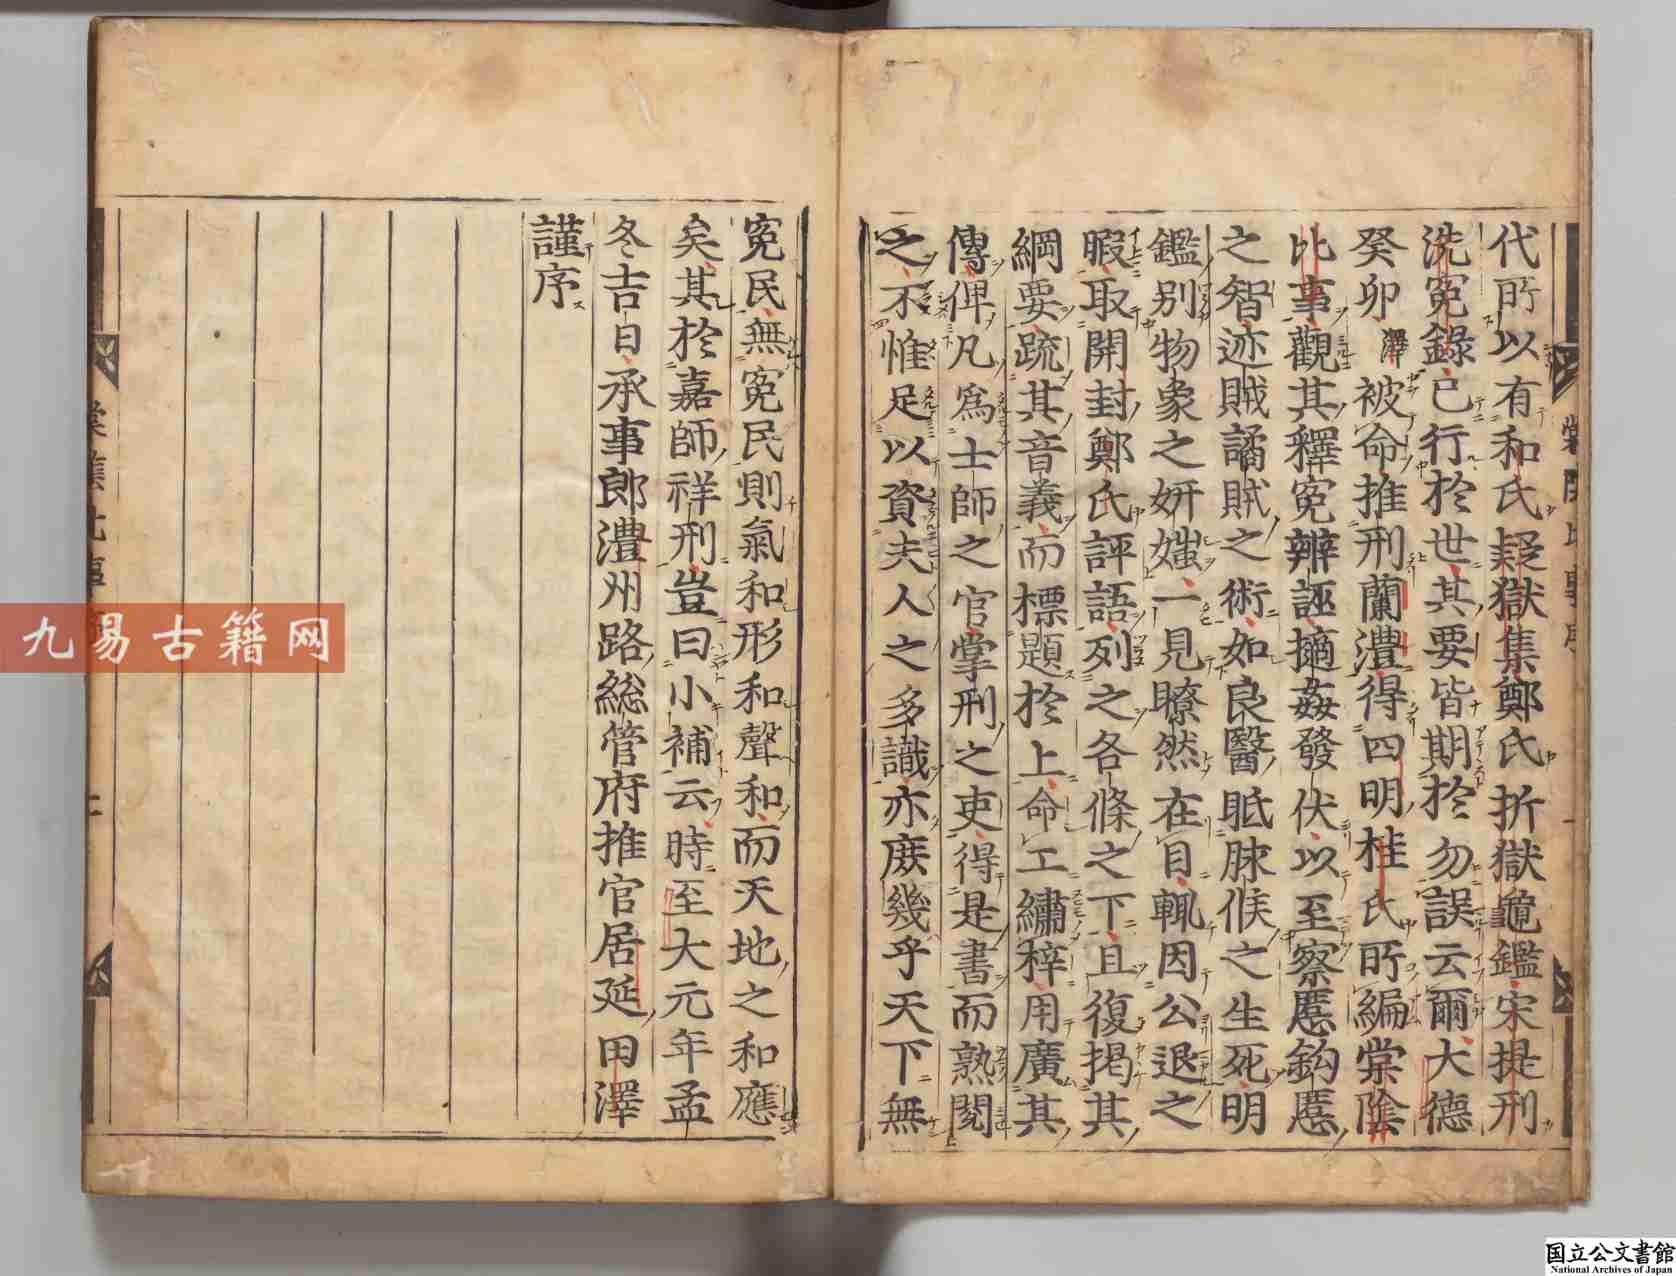 代所以有和氏疑獄集鄭氏折獄龜鑑宋提刑
洗冤錄已行於世其要皆期於勿誤云爾大德
癸卯澤被命推刑蘭澧得四明桂氏所編棠陰
比事觀其釋冤辨誣擿姦發伏以至察慝鈎慝
之智迹賊譎賊之術如良醫眡脉候之生死明
鑑别物象之妍媸一見瞭然在目輒因公退之
暇取開封鄭氏評語列之各條之下且復掲其
綱要疏其音義而標題於上命工繡梓用廣其
傳俾凡為士師之官掌刑之吏得是書而熟閱
之不惟足以資夫人之多識亦庶幾乎天下無
冤民無冤民則氣和形和聲和而天地之和應
矣其於嘉師祥刑豈曰小補云時至大元年孟
冬吉日承事郎澧州路総管府推官居延田澤
謹序
九易古籍网
国立公文書館
National Archives of Japan